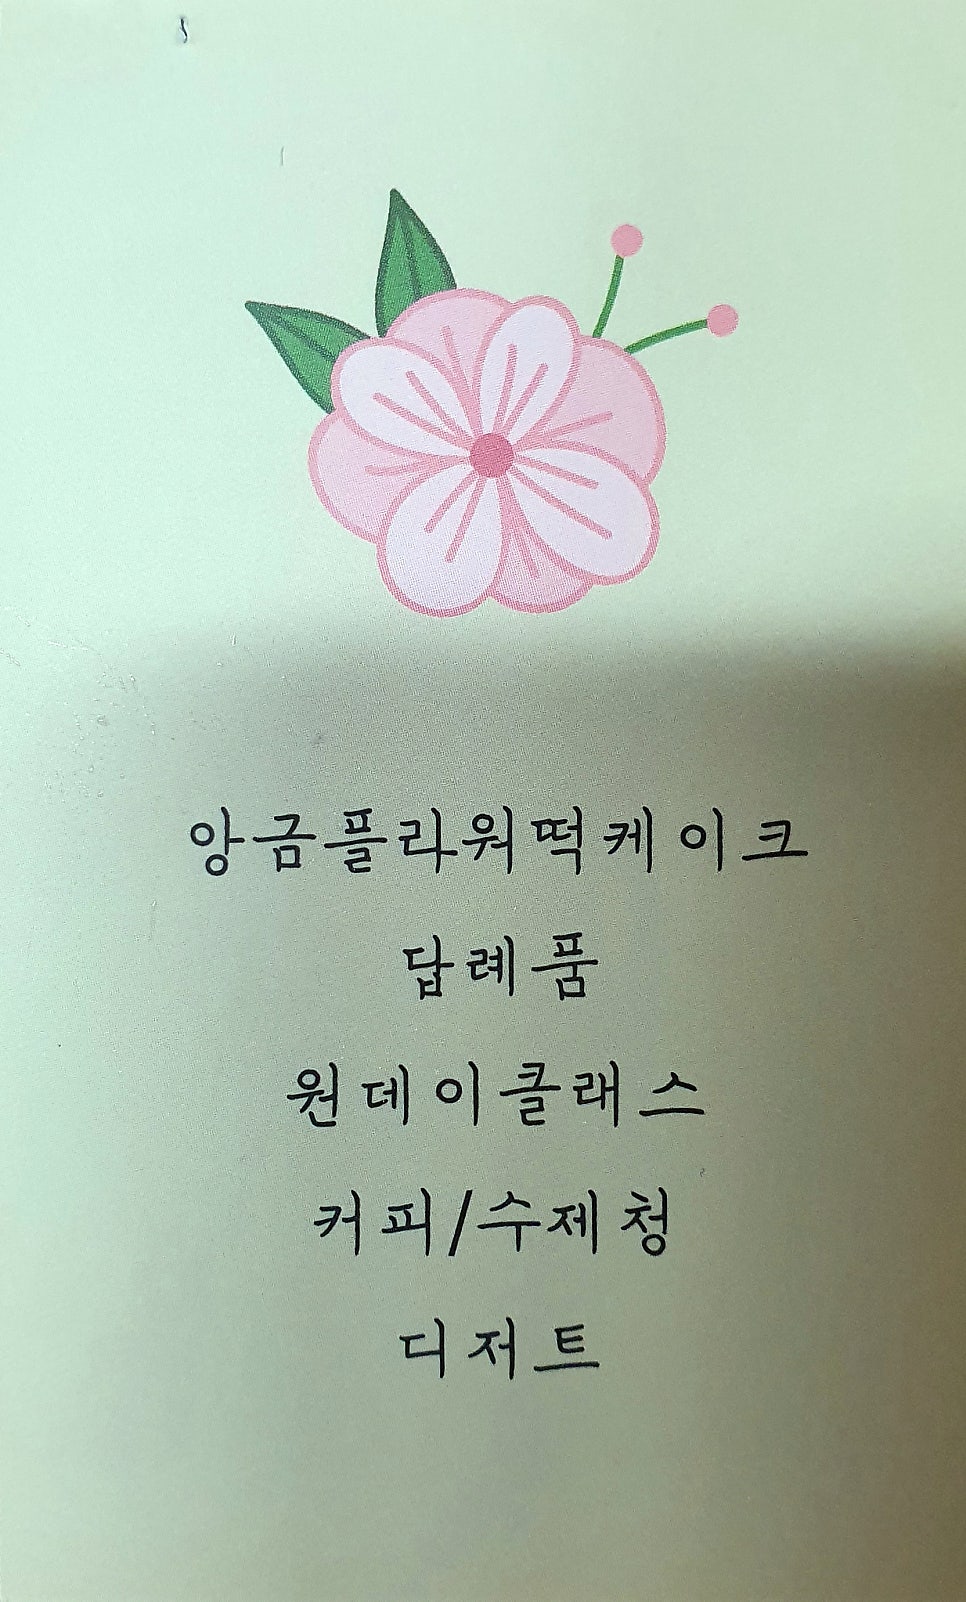 앙금플라워떡케이크
답례품
원데이클래스
커피/수제청
디저트